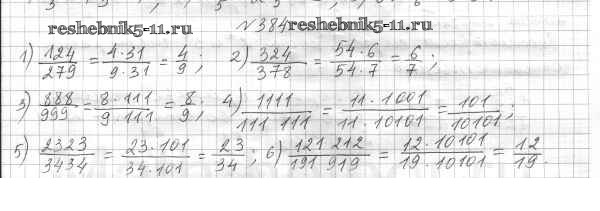 reshebnik5-11.ru №384 reshebnik5-11.ru
1) 124/279 = 4·31/9·31 = 4/9; 2) 324/378 = 54·6/54·7 = 6/7;
3) 888/999 = 8·111/9·111 = 8/9; 4) 1111/111 111 = 11·1001/11·10101 = 101/10101;
5) 2323/3434 = 23·101/34·101 = 23/34; 6) 121 212/191 919 = 12·10101/19·10101 = 12/19.